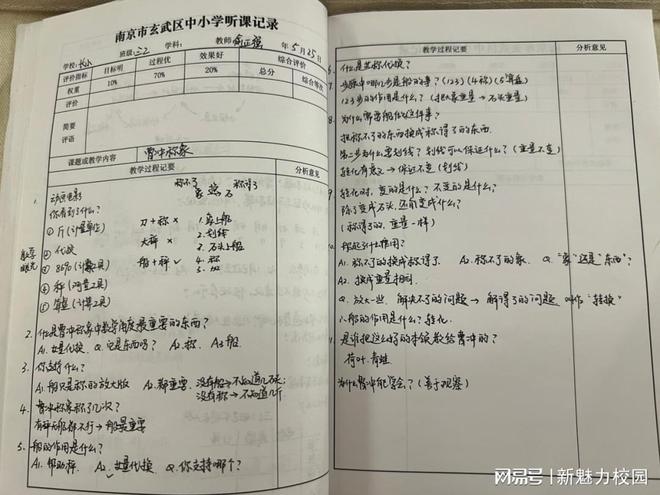 南京市玄武区中小学听课记录
学校:长小 班级:三2 学科: 教师 俞正强 年5月25日
评价指标 目标明 过程优 效果好 综合评价
权重 10% 70% 20% 总分 综合等
评价
简要
评语
课题或教学内容 曹冲称象
教学过程记要 分析意见
称不了 称得了
象 石
1. 动画电影
你看到了什么?
① 斤(计量单位) 刀+称 × 1.象上船
② 代换 大秤 × 2.划线
3.石头上船
④ 秤(测量工具) 船+秤 ✓ 4.称
⑤ 算盘(计算工具) 5.加
数学
眼光
2. 什么是曹冲称象中数学角度最重要的东西?
A1.放量代换 Q.它是东西吗? A2.称. A3.船.
3. 你支持什么?
A1.船只是称的放大版 A2.都重要.没有船→不知道几块;
没有称→不知道几斤
4. 曹冲称象称了几次?
有称无船都不行→船最重要
5. 船的作用是什么?
A1.帮助称. A2.等量代换 Q.你支持哪个?
教学过程记要 分析意见
6. 什么是等称代换?
7. 步骤中哪几步是船的事?(123)(4称)(5算盘)
123步的作用是什么?(把大象重量→石头重量)
8. 为什么需要船做这件事?
把称不了的东西换成称得了的东西.
第二步为什么要划线?划线可以保证什么?(重量不变)
转化有意义→保证不变(划线)
9. 转化时,变的是什么?不变的是什么?
除了变成石头,还能变成什么?
(称得了的,重量一样)
10. 船起到什么作用?
A1.称不了的换成称得了. A2.称不了的象. Q“象”还是“东西”?
A2.换成重量相同.
Q.放大一些.解决不了的问题→解得了的问题 叫作“转换”
小船的作用是什么?转化.
11. 是谁把这么好的本领教给曹冲的?
荷叶.青蛙
为什么曹冲能学会?(善于观察)
网易号 | 新魅力校园